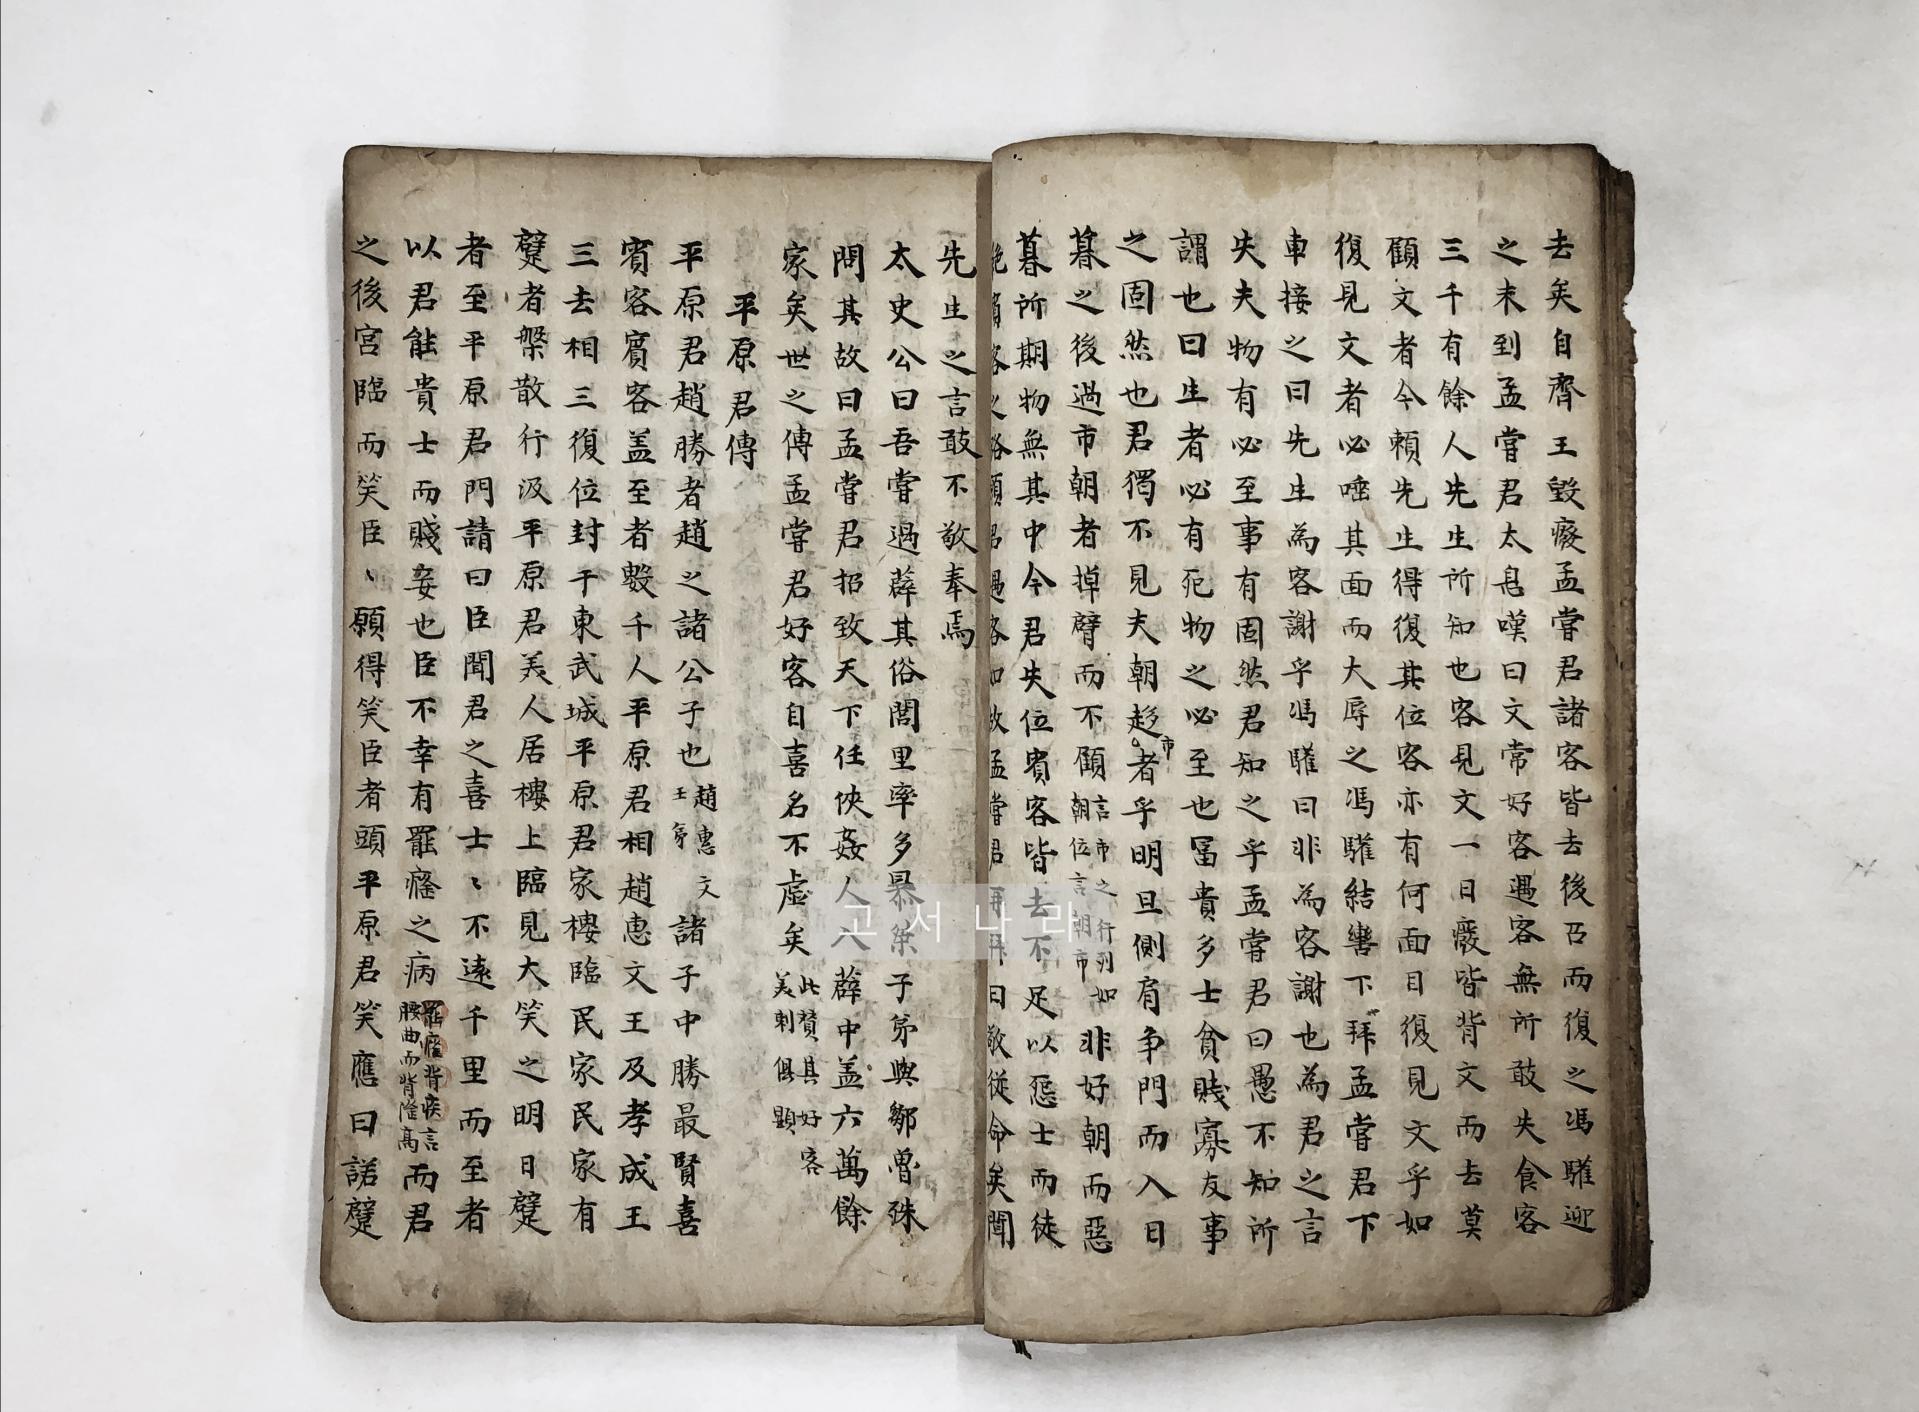 去矣自齊王毀癈孟嘗君諸客皆去後召而復之馮驩迎
之未到孟嘗君太息嘆曰文常好客遇客無所敢失食客
三千有餘人先生所知也客見文一日癈皆背文而去莫
顧文者今賴先生得復其位客亦有何面目復見文乎如
復見文者必唾其面而大辱之馮驩結轡下拜孟嘗君下
車接之曰先生為客謝乎馮驩曰非為客謝也為君之言
失夫物有必至事有固然君知之乎孟嘗君曰愚不知所
謂也曰生者必有死物之必至也冨貴多士貧賤寡友事
之固然也君獨不見夫朝趍市者乎明旦側肩争門而入日
暮之後過市朝者掉臂而不顧言市之行列如朝位言朝市非好朝而惡
暮所期物無其中今君失位賓客皆去不足以怨士而徒
絶賓客之路願君遇客如故孟嘗君再拜曰敬從命矣聞
先生之言敢不敬奉焉
太史公曰吾嘗過薛其俗閭里率多暴桀子弟與鄒魯殊
問其故曰孟嘗君招致天下任俠姦人入薛中盖六萬餘
家矣世之傳孟嘗君好客自喜名不虛矣此賛其好客美刺俱顯
平原君傳
平原君趙勝者趙之諸公子也趙惠文王弟諸子中勝最賢喜
賓客賓客盖至者數千人平原君相趙惠文王及孝成王
三去相三復位封于東武城平原君家樓臨民家民家有
躄者槃散行汲平原君美人居樓上臨見大笑之明日躄
者至平原君門請曰臣聞君之喜士〻不遠千里而至者
以君能貴士而賤妾也臣不幸有罷癃之病罷癃背疾言腰曲而背隆高而君
之後宮臨而笑臣〻願得笑臣者頭平原君笑應曰諾躄
고서나라